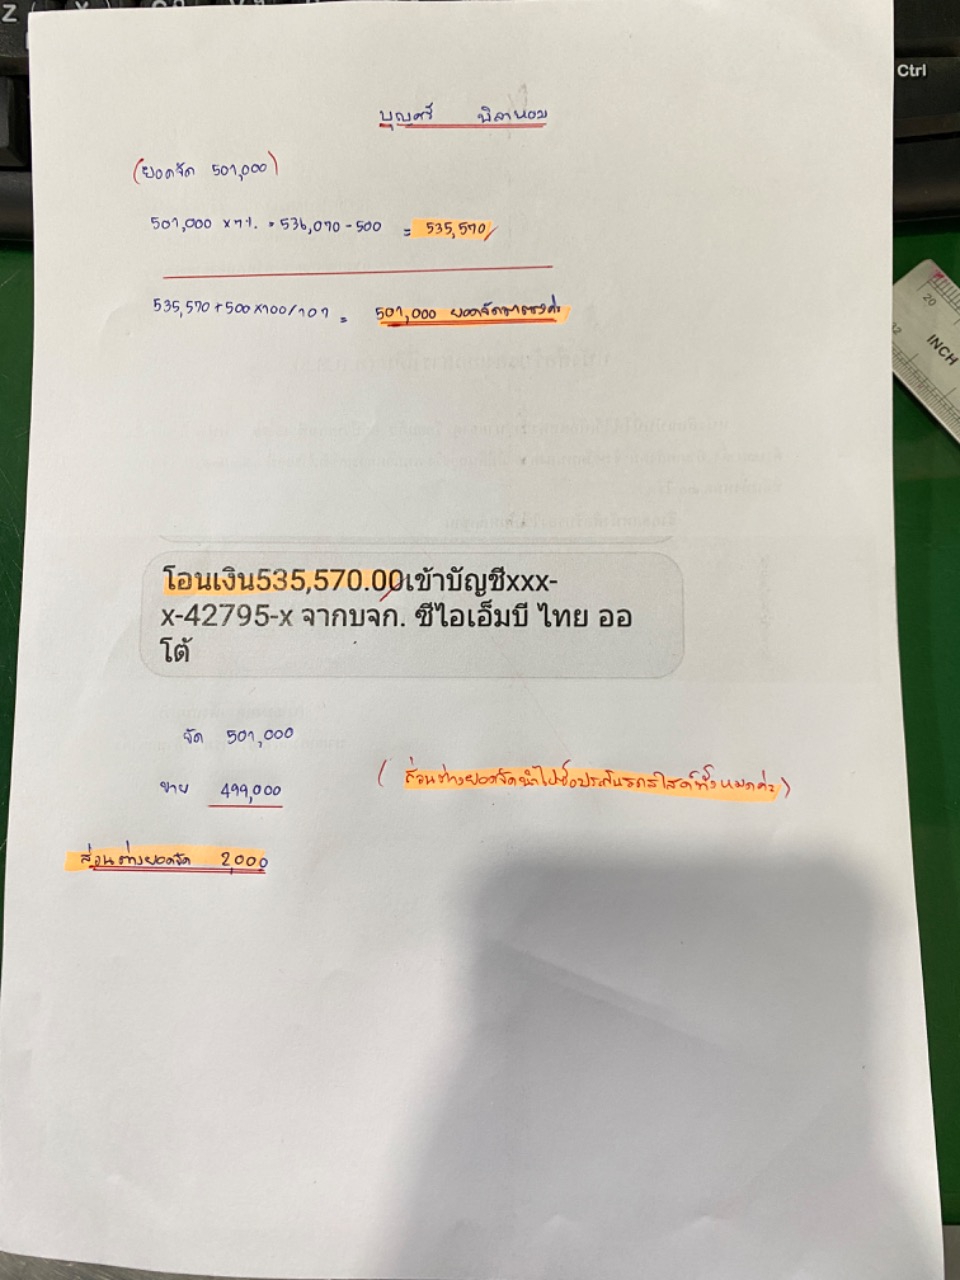 Z
Ctrl
บุญศรี พิลาหอม
(ยอดจัด 501,000)
501,000 x 7%. = 536,070 - 500 = 535,570/
535,570 + 500 x 100/107 = 501,000 ยอดจัดมาตรงค่ะ
20
INCH
โอนเงิน535,570.00เข้าบัญชีxxx-
x-42795-x จากบจก. ซีไอเอ็มบี ไทย ออ
โต้
จัด 501,000
ขาย 499,000
(ส่วนต่างยอดจัดนำไปซื้อประกันรถใส่ได้ทั้งหมดค่ะ)
ส่วนต่างยอดจัด 2,000